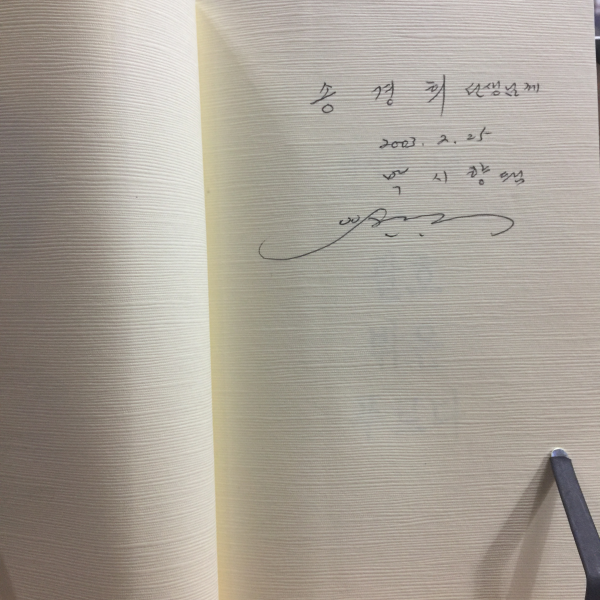 송 경 희 선생님께
2003. 2. 25
박 시 향 드림